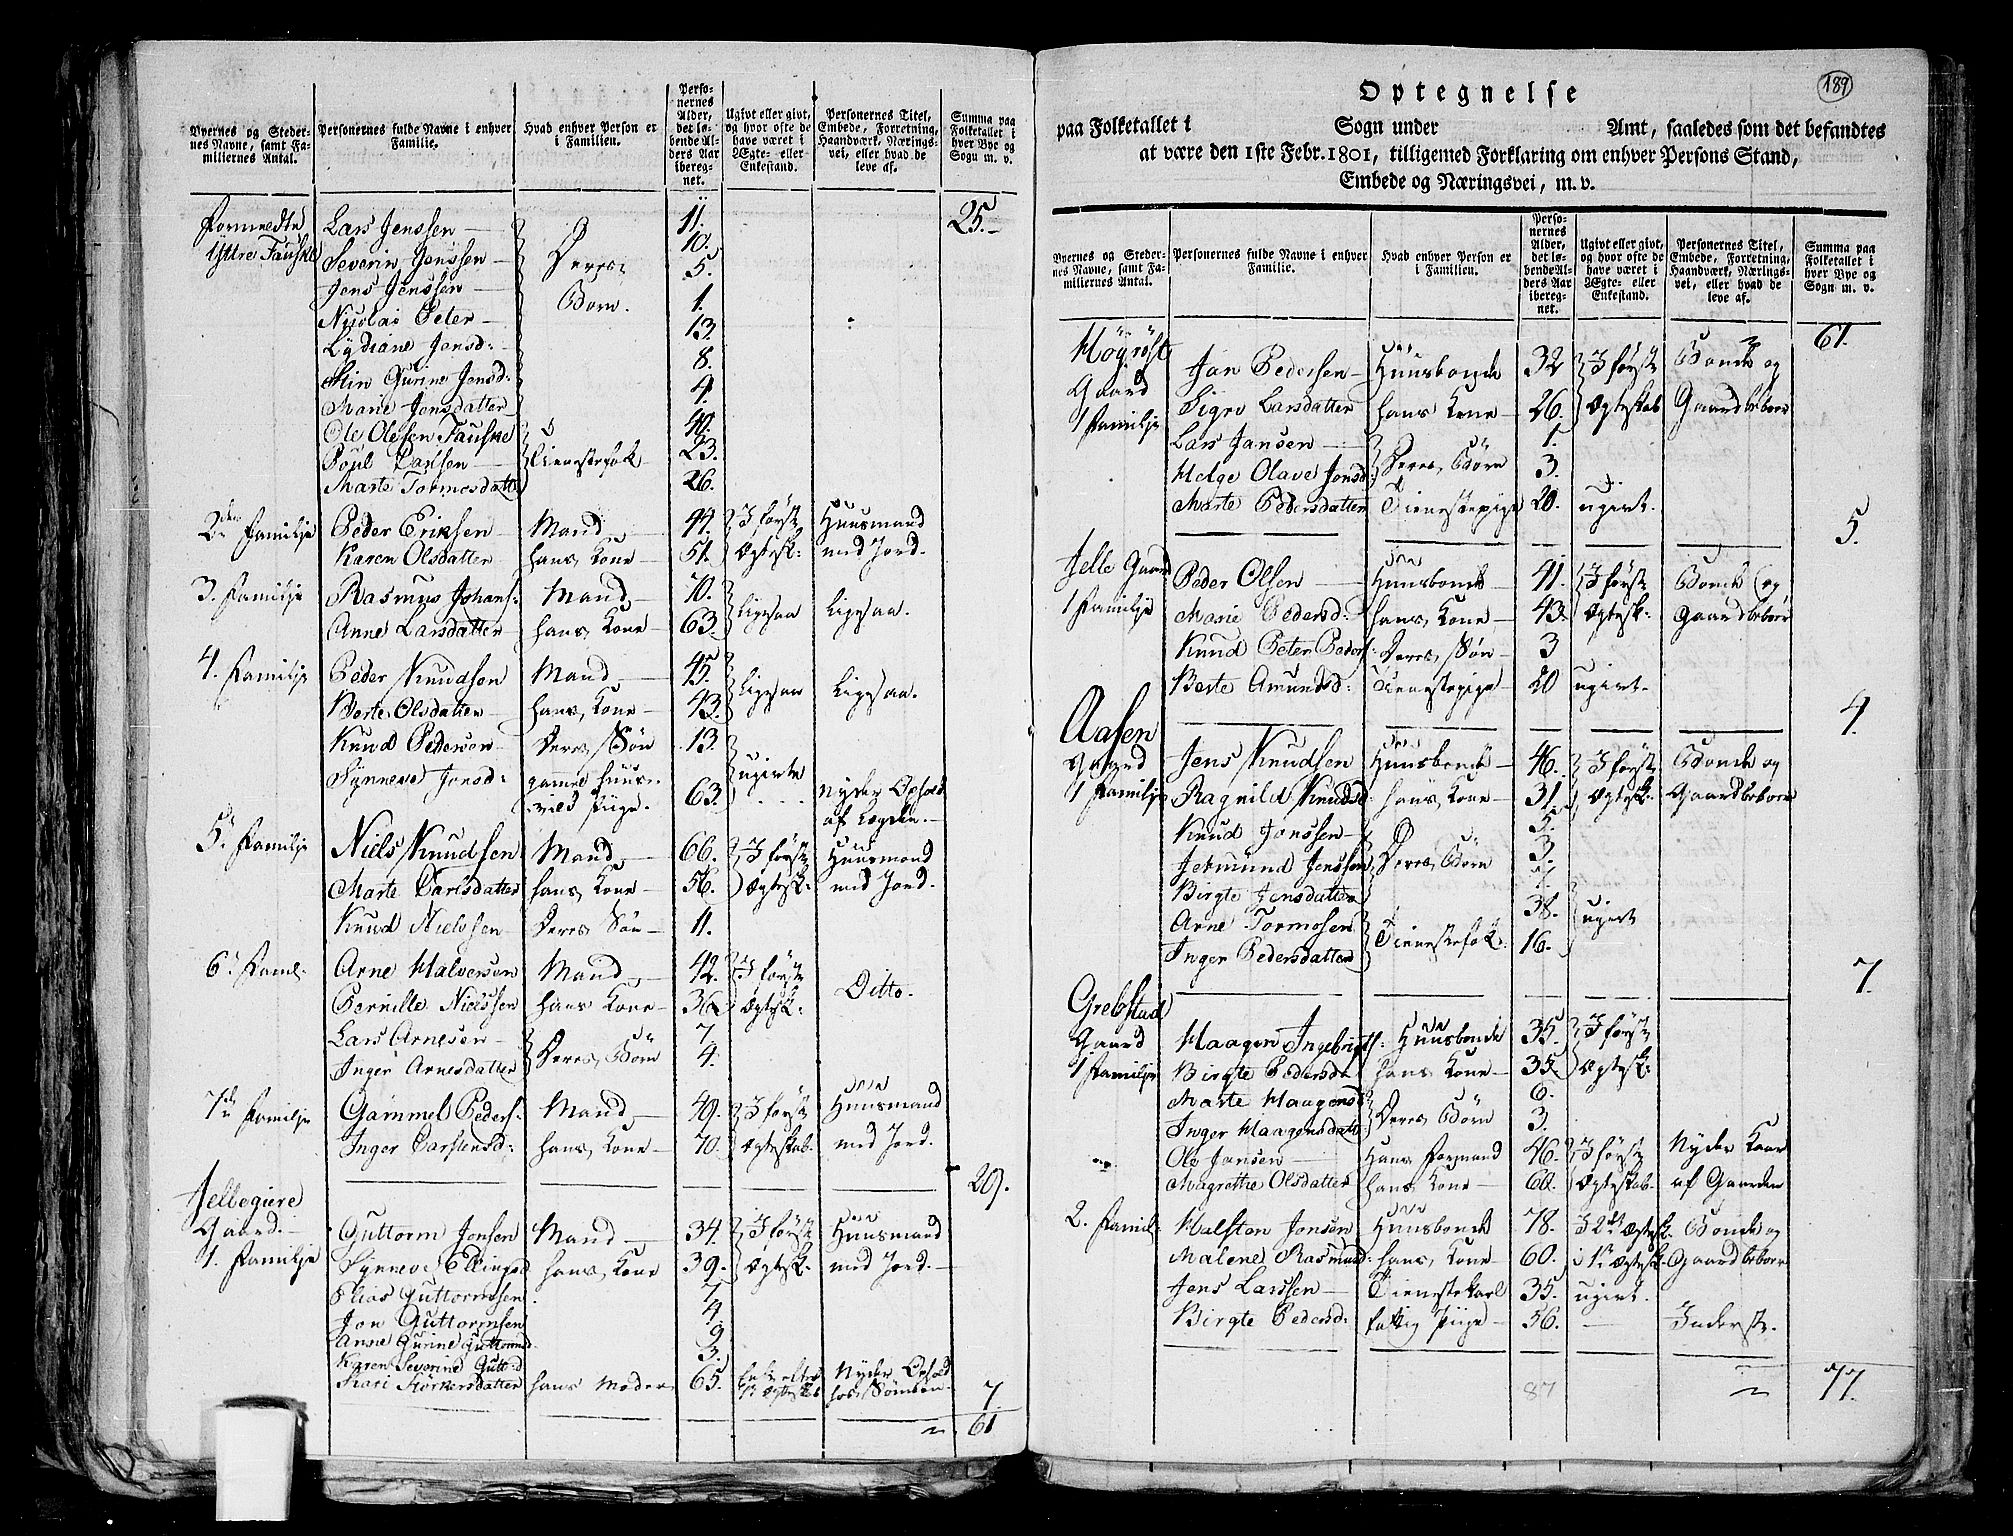 Byernes og Stedernes Navne, samt Familiernes Antal. | Personernes fulde Navne i enhver Familie. | Hvad enhver Person er i Familien. | Personernes Alder, det løbende Alders Aar iberegnet. | Ugivt eller givt, og hvor ofte de have været i Ægte- eller Enkestand. | Personernes Titel, Embede, Forretning, Haandværk, Næringsvei, eller hvad de leve af. | Summa paa Folketallet i hver Bye og Sogn m. v.
Lars Jenssen 11. 25.
Yttre Fauske Severin Jenssen Deres 10.
Jens Jenssen Børn. 5.
Nicolai Peter 1.
Lydiane Jensd: 13.
Gurine Jensd: 8.
Marie Jensdatter 4.
Ole Olesen Fauske
Poul Larssen Tienestefolk 23.
Marte Tormosdatter 26.
2den Familje Peder Eriksen Mand 44. I første Huusmand
Karen Olsdatter hans Kone 51. Ægtesk: med Jord.
3. Familje Rasmus Johans: Mand 70. Ligesaa Ligesaa.
Anne Larsdatter hans Kone 63.
4. Familje Peder Knudsen Mand 45. Ligesaa Ligesaa.
Berte Olsdatter hans Kone 43.
Knud Pedersen Deres Søn 13.
Synneve Jonsd: gamel huus- ugivte
vild Pige. 63. Nyder Ophold
af Lægden.
5. Familje Niels Knudsen Mand 66. I første Huusmand
Marte Carlsdatter hans Kone 56. Ægtesk: med Jord.
Knud Nielssen Deres Søn 11.
6. Famil: Arne Halversen Mand 42. I første Ditto.
Pernille Nielssen hans Kone 36 Ægtesk:
Lars Arnesen Deres Børn 7
Inger Arnesdatter 4.
7de Familje Gammel Peders: Mand 49. I første Huusmand
Inger Carstensd: hans Kone 70. Ægteskab. med Jord.
29.
Jellegiere
Gaard. Guttorm Jonsen Mand 34. I første Huusmand
1. Familje Synneve Ellingsd hans Kone 39. Ægtesk. med Jord.
Elias Guttormsen 7
Jon Guttormsen 4
Anne Gurine Guttormsd 9
Karen Severine Gutt:d 3.
Kari Størkersdatter hans Moder 65. Nyder Ophold
hos Sønnen. 7.
61
189
Optegnelse
paa Folketallet i Sogn under Amt, saaledes som det befandtes
at være den 1ste Febr. 1801, tilligemed Forklaring om enhver Persons Stand,
Embede og Næringsvei, m. v.
Byernes og Stedernes Navne, samt Familiernes Antal. | Personernes fulde Navne i enhver Familie. | Hvad enhver Person er i Familien. | Personernes Alder, det løbende Alders Aar iberegnet. | Ugivt eller givt, og hvor ofte de have været i Ægte- eller Enkestand. | Personernes Titel, Embede, Forretning, Haandværk, Næringsvei, eller hvad de leve af. | Summa paa Folketallet i hver Bye og Sogn m. v.
61.
Høgrøst Jan Pedersen Huusbonde 32 I første Bonde og
Gaard Sigri Larsdatter hans Kone 26. Ægteskab Gaardbeboer
1 Familje Lars Jansen Deres Børn 1.
Helge Olave Jonsd: 3.
Marte Pedersdatter Tienestepige 20. ugivt.
5.
Jelle Gaard Peder Olsen Huusbonde 41. I første Bonde og
1 Familje Marie Pedersd: hans Kone 43. Ægtesk: Gaardbeboer
Knud Peter Peders: Deres Søn 3
Berte Amundsd: Tienestepige 20 ugivt.
4.
Aasen
Gaard Jens Knudsen Huusbonde 46. I første Bonde og
1 Familje Ragnild Knudsd: hans Kone 31. Ægtesk: Gaardbeboer
Knud Jenssen 5.
Jetmund Jenssen Deres Børn 3.
Birgte Jensdatter 1.
Arne Tormosen Tienestefolk 38. ugivt
Inger Pedersdatter 16.
7.
Grebstad
Gaard Haagen Ingebrigts: Huusbonde 35. I første
1 Familje Birgte Pedersda hans Kone 35. Ægtesk:
Marte Haagensd Deres Børn 6.
Inger Haagensdatt 3.
Ole Jansen Hans Formand 46. I første Nyder Kaar
Magrethe Olsdatter hans Kone 60. Ægteskab. af Gaarden
2. Famil: Halsten Jensen Huusbonde 78. I 2det Ægtesk. Bonde og
Malene Rasmusd: hans Kone 60. i 1te Ægtesk. Gaardbeboer
Jens Larssen Tienestekarl 35. ugivt.
Birgte Pedersd: fattig Pige 56. Inderste.
87 77.